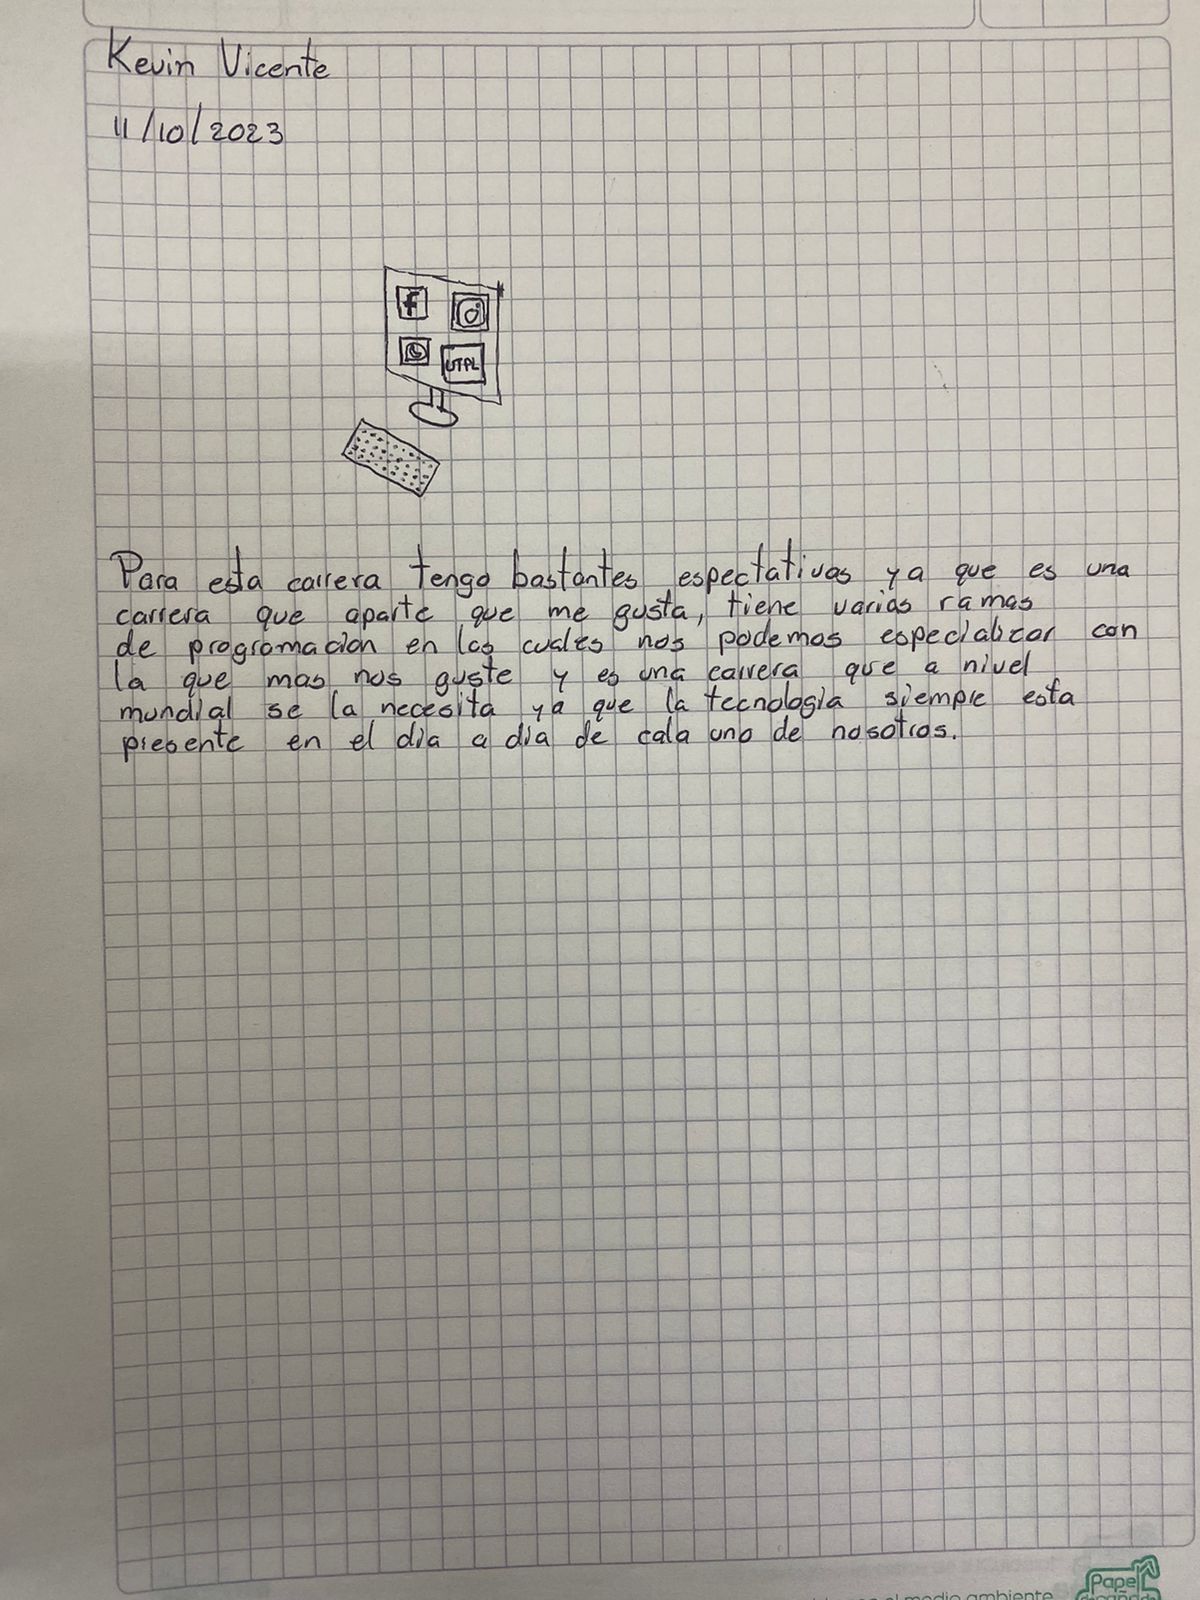 Kevin Vicente
11/10/2023
f
UTPL
Para esta carrera tengo bastantes espectativas ya que es una
carrera que aparte que me gusta, tiene varias ramas
de programacion en las cuales nos podemos especialicar con
la que mas nos guste y es una carrera que a nivel
mundial se la necesita ya que la tecnología siempre esta
presente en el día a día de cala uno de nosotros.
el medio ambiente
Papel